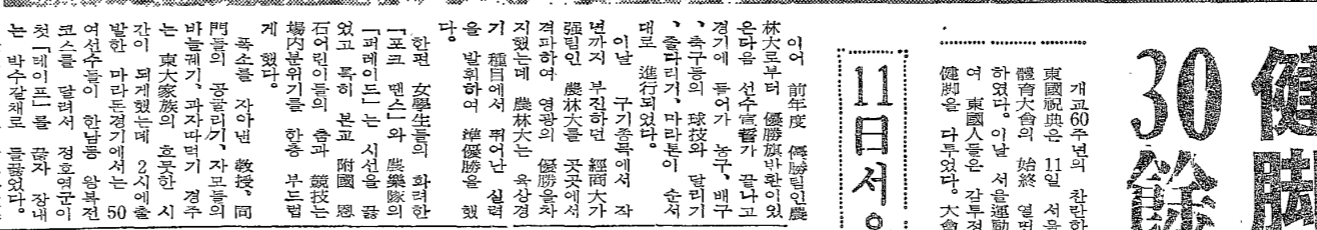 健脚
30餘
개교60주년의 찬란한
東國祝典은 11일 서울
體育大會의 始終 열띤
하였다. 이날 서울運動
여 東國人들은 감투정
健脚을 다투었다. 大會
11日서우
이어 前年度 優勝팀인農
林大로부터 優勝旗반환이있
은다음 선수宣誓가 끝나고
경기에 들어가 농구, 배구
, 축구등의 球技와 달리기
, 줄다리기, 마라톤이 순서
대로 進行되었다.
이날 구기종목에서 작
년까지 부진하던 經商大가
强팀인 農林大를 곳곳에서
격파하여 영광의 優勝을차
지했는데 農林大는 육상경
기 種目에서 뛰어난 실력
을 발휘하여 準優勝을 했
다.
한편 女學生들의 화려한
「포크 댄스」와 農樂隊의
「퍼레이드」는 시선을 끌
었고 특히 본교 附國 恩
石어린이들의 춤과 競技는
場內분위기를 한층 부드럽
게 했다.
폭소를 자아낸 敎授、同
門들의 공굴리기, 자모들의
바늘꿰기, 과자따먹기 경주
는 東大家族의 흐뭇한 시
간이 되게했는데 2시에출
발한 마라톤경기에서는 50
여선수들이 한남동 왕복전
코스를 달려서 정호영군이
첫「테이프」를 끊자 장내
는 박수갈채로 들끓었다.